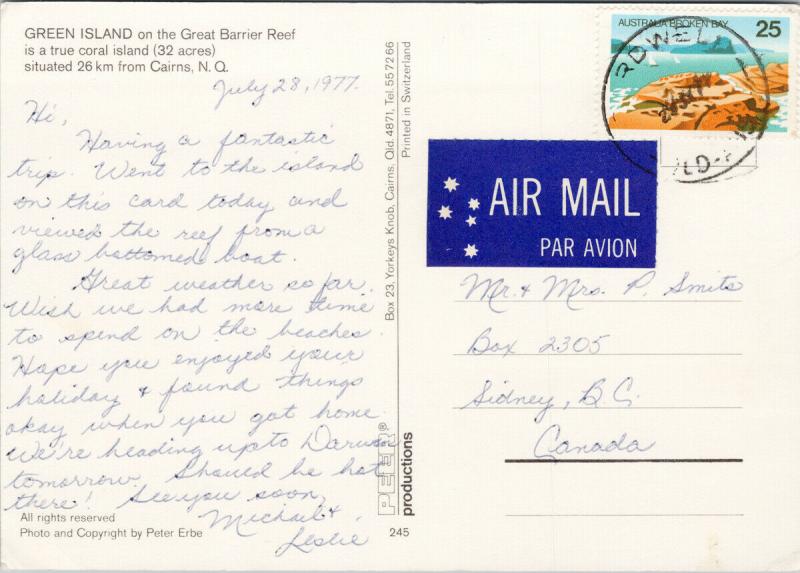 GREEN ISLAND on the Great Barrier Reef
is a true coral island (32 acres)
situated 26 km from Cairns, N.Q.
July 28, 1977.
Hi,
Having a fantastic
trip. Went to the island
on this card today and
viewed the reef from a
glass bottomed boat.
Great weather so far.
Wish we had more time
to spend on the beaches.
Hope you enjoyed your
holiday & found things
okay when you got home.
We're heading up to Darwin
tomorrow. Should be hot
there! See you soon,
Michael &
Leslie
All rights reserved
Photo and Copyright by Peter Erbe
245
PEER® productions
Box 23, Yorkeys Knob, Cairns, Qld. 4871, Tel. 557266
Printed in Switzerland
AUSTRALIA BROKEN BAY 25
AIR MAIL
PAR AVION
Mr. & Mrs. P. Smits
Box 2305
Sidney, B.C.
Canada